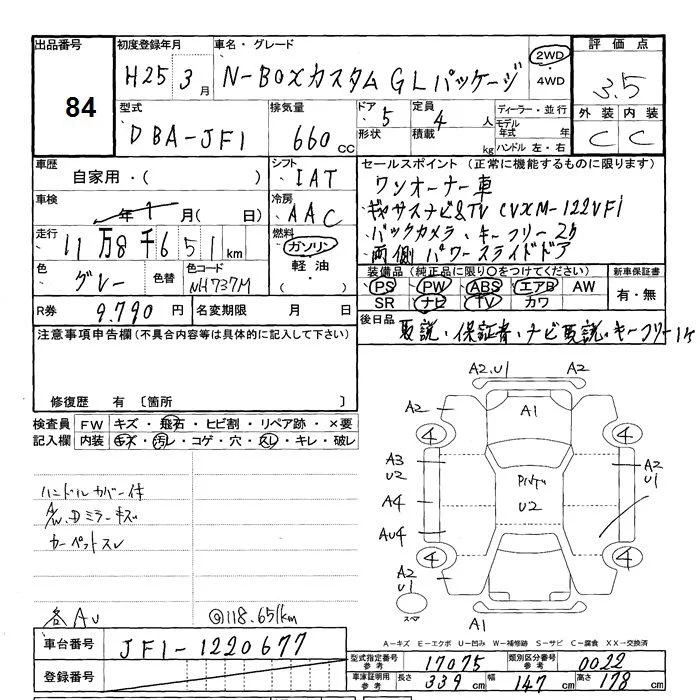 出品番号 初度登録年月 車名・グレード 評価点
84 H25 3月 N-BOXカスタム GLパッケージ 2WD・4WD 3.5
外装 内装
C C
型式 排気量 ドア 定員 ディーラー・並行
DBA-JF1 660cc 5 4人 モデル年式 年
形状 積載 kg ハンドル 左・右
車歴 シフト セールスポイント (正常に機能するものに限ります)
自家用・( ) IAT ワンオーナー車
車検 冷房 ギャザスナビ&TV (VXM-122VFi
年 1月(日) AAC バックカメラ、キーフリー2ケ
走行 燃料 両側パワースライドドア
11万8千651km ガソリン
軽油
色 色替 色コード 装備品(純正品に限り○をつけてください) 新車保証書
グレー NH737M PS PW ABS エアB AW 有・無
SR ナビ TV カワ
R券 9.790円 名変期限 月 日 後日品
取説・保証書・ナビ取説・キーフリー1ケ
注意事項申告欄(不具合内容等は具体的に記入して下さい)
修復歴 有 〔箇所 〕
検査員 FW キズ・飛石・ヒビ割・リペア跡・×要
記入欄 内装 キズ・汚レ・コゲ・穴・スレ・キレ・破レ
A2.U1 A2
A2 A1
4 4
A3 U2 A2 U1
A4 U2
AU4
4 4
A2 U1
スペア A1
ハンドルカバー体
A/W.Dミラーキズ
カーペットスレ
各AU @118.651km
A-キズ E-エクボ U-凹み W-補修跡 S-サビ C-腐食 XX-交換済
車台番号 JF1-1220677
型式指定番号 参考 17075 類別区分番号 参考 0022
登録番号
車庫証明用 参考 長さ 339cm 幅 147cm 高さ 178cm